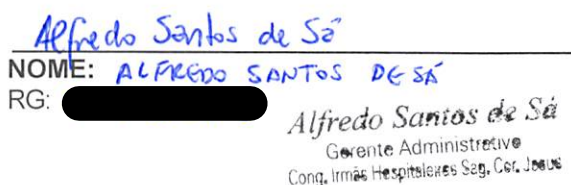 Alfredo Santos de Sá
NOME: ALFREDO SANTOS DE SÁ
RG:
Alfredo Santos de Sá
Gerente Administrativo
Cong. Irmãs Hospitaleiras Sag. Cor. Jesus